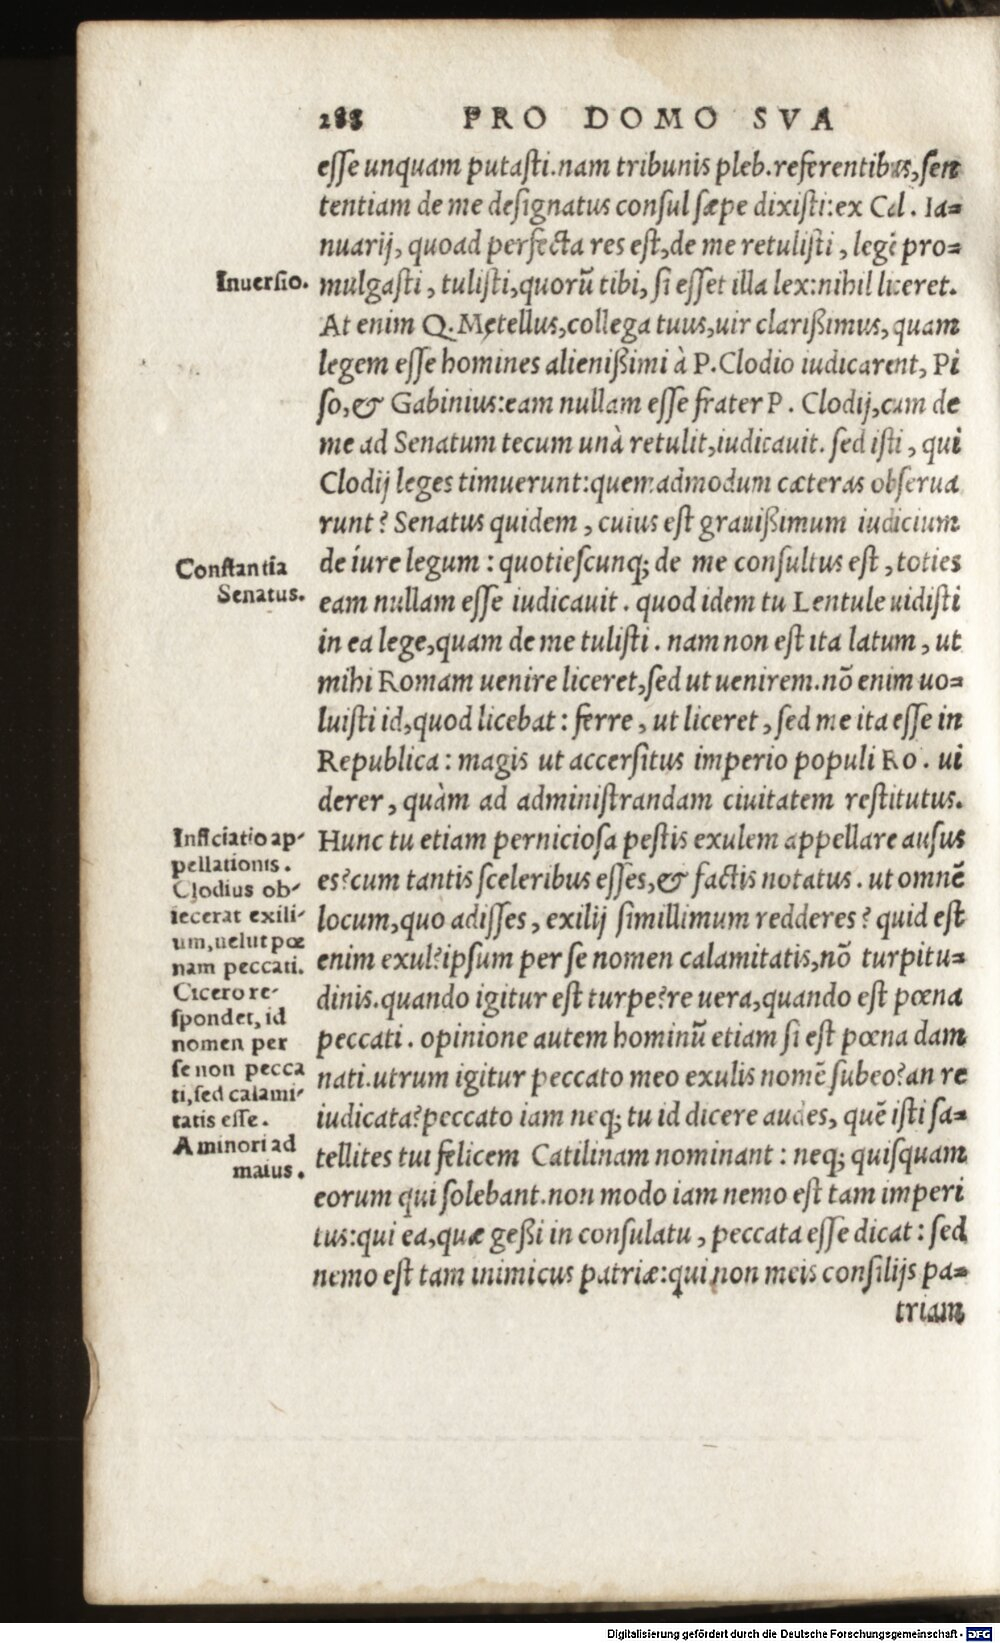 288 PRO DOMO SVA
esse unquam putasti.nam tribunis pleb.referentibus,sen
tentiam de me designatus consul sæpe dixisti:ex Cal. Ia=
nuarij, quoad perfecta res est,de me retulisti, legē pro=
Inuersio.
mulgasti, tulisti,quorū tibi, si esset illa lex:nihil liceret.
At enim Q.Metellus,collega tuus,uir clarißimus, quam
legem esse homines alienißimi à P.Clodio iudicarent, Pi
so,& Gabinius:eam nullam esse frater P. Clodij,cum de
me ad Senatum tecum unà retulit,iudicauit. sed isti, qui
Clodij leges timuerunt:quemadmodum cæteras obserua
runt? Senatus quidem, cuius est grauißimum iudicium
Constantia
Senatus.
de iure legum: quotiescunq; de me consultus est, toties
eam nullam esse iudicauit. quod idem tu Lentule uidisti
in ea lege,quam de me tulisti. nam non est ita latum, ut
mihi Romam uenire liceret,sed ut uenirem.nō enim uo=
luisti id,quod licebat: ferre, ut liceret, sed me ita esse in
Republica: magis ut accersitus imperio populi Ro. ui
derer, quàm ad administrandam ciuitatem restitutus.
Inficiatio ap-
pellationis.
Clodius ob-
iecerat exili-
um,uelut pœ
nam peccati.
Cicero re-
spondet, id
nomen per
se non pecca
ti,sed calami-
tatis esse.
A minori ad
maius.
Hunc tu etiam perniciosa pestis exulem appellare ausus
es?cum tantis sceleribus esses,& factis notatus. ut omnē
locum,quo adisses, exilij simillimum redderes? quid est
enim exul?ipsum per se nomen calamitatis,nō turpitu=
dinis.quando igitur est turpe?re uera,quando est pœna
peccati. opinione autem hominū etiam si est pœna dam
nati.utrum igitur peccato meo exulis nomē subeo?an re
iudicata?peccato iam neq; tu id dicere audes, quē isti sa=
tellites tui felicem Catilinam nominant: neq; quisquam
eorum qui solebant.non modo iam nemo est tam imperi
tus:qui ea,quæ geßi in consulatu, peccata esse dicat: sed
nemo est tam inimicus patriæ:qui non meis consilijs pa=
triam
Digitalisierung gefördert durch die Deutsche Forschungsgemeinschaft - DFG